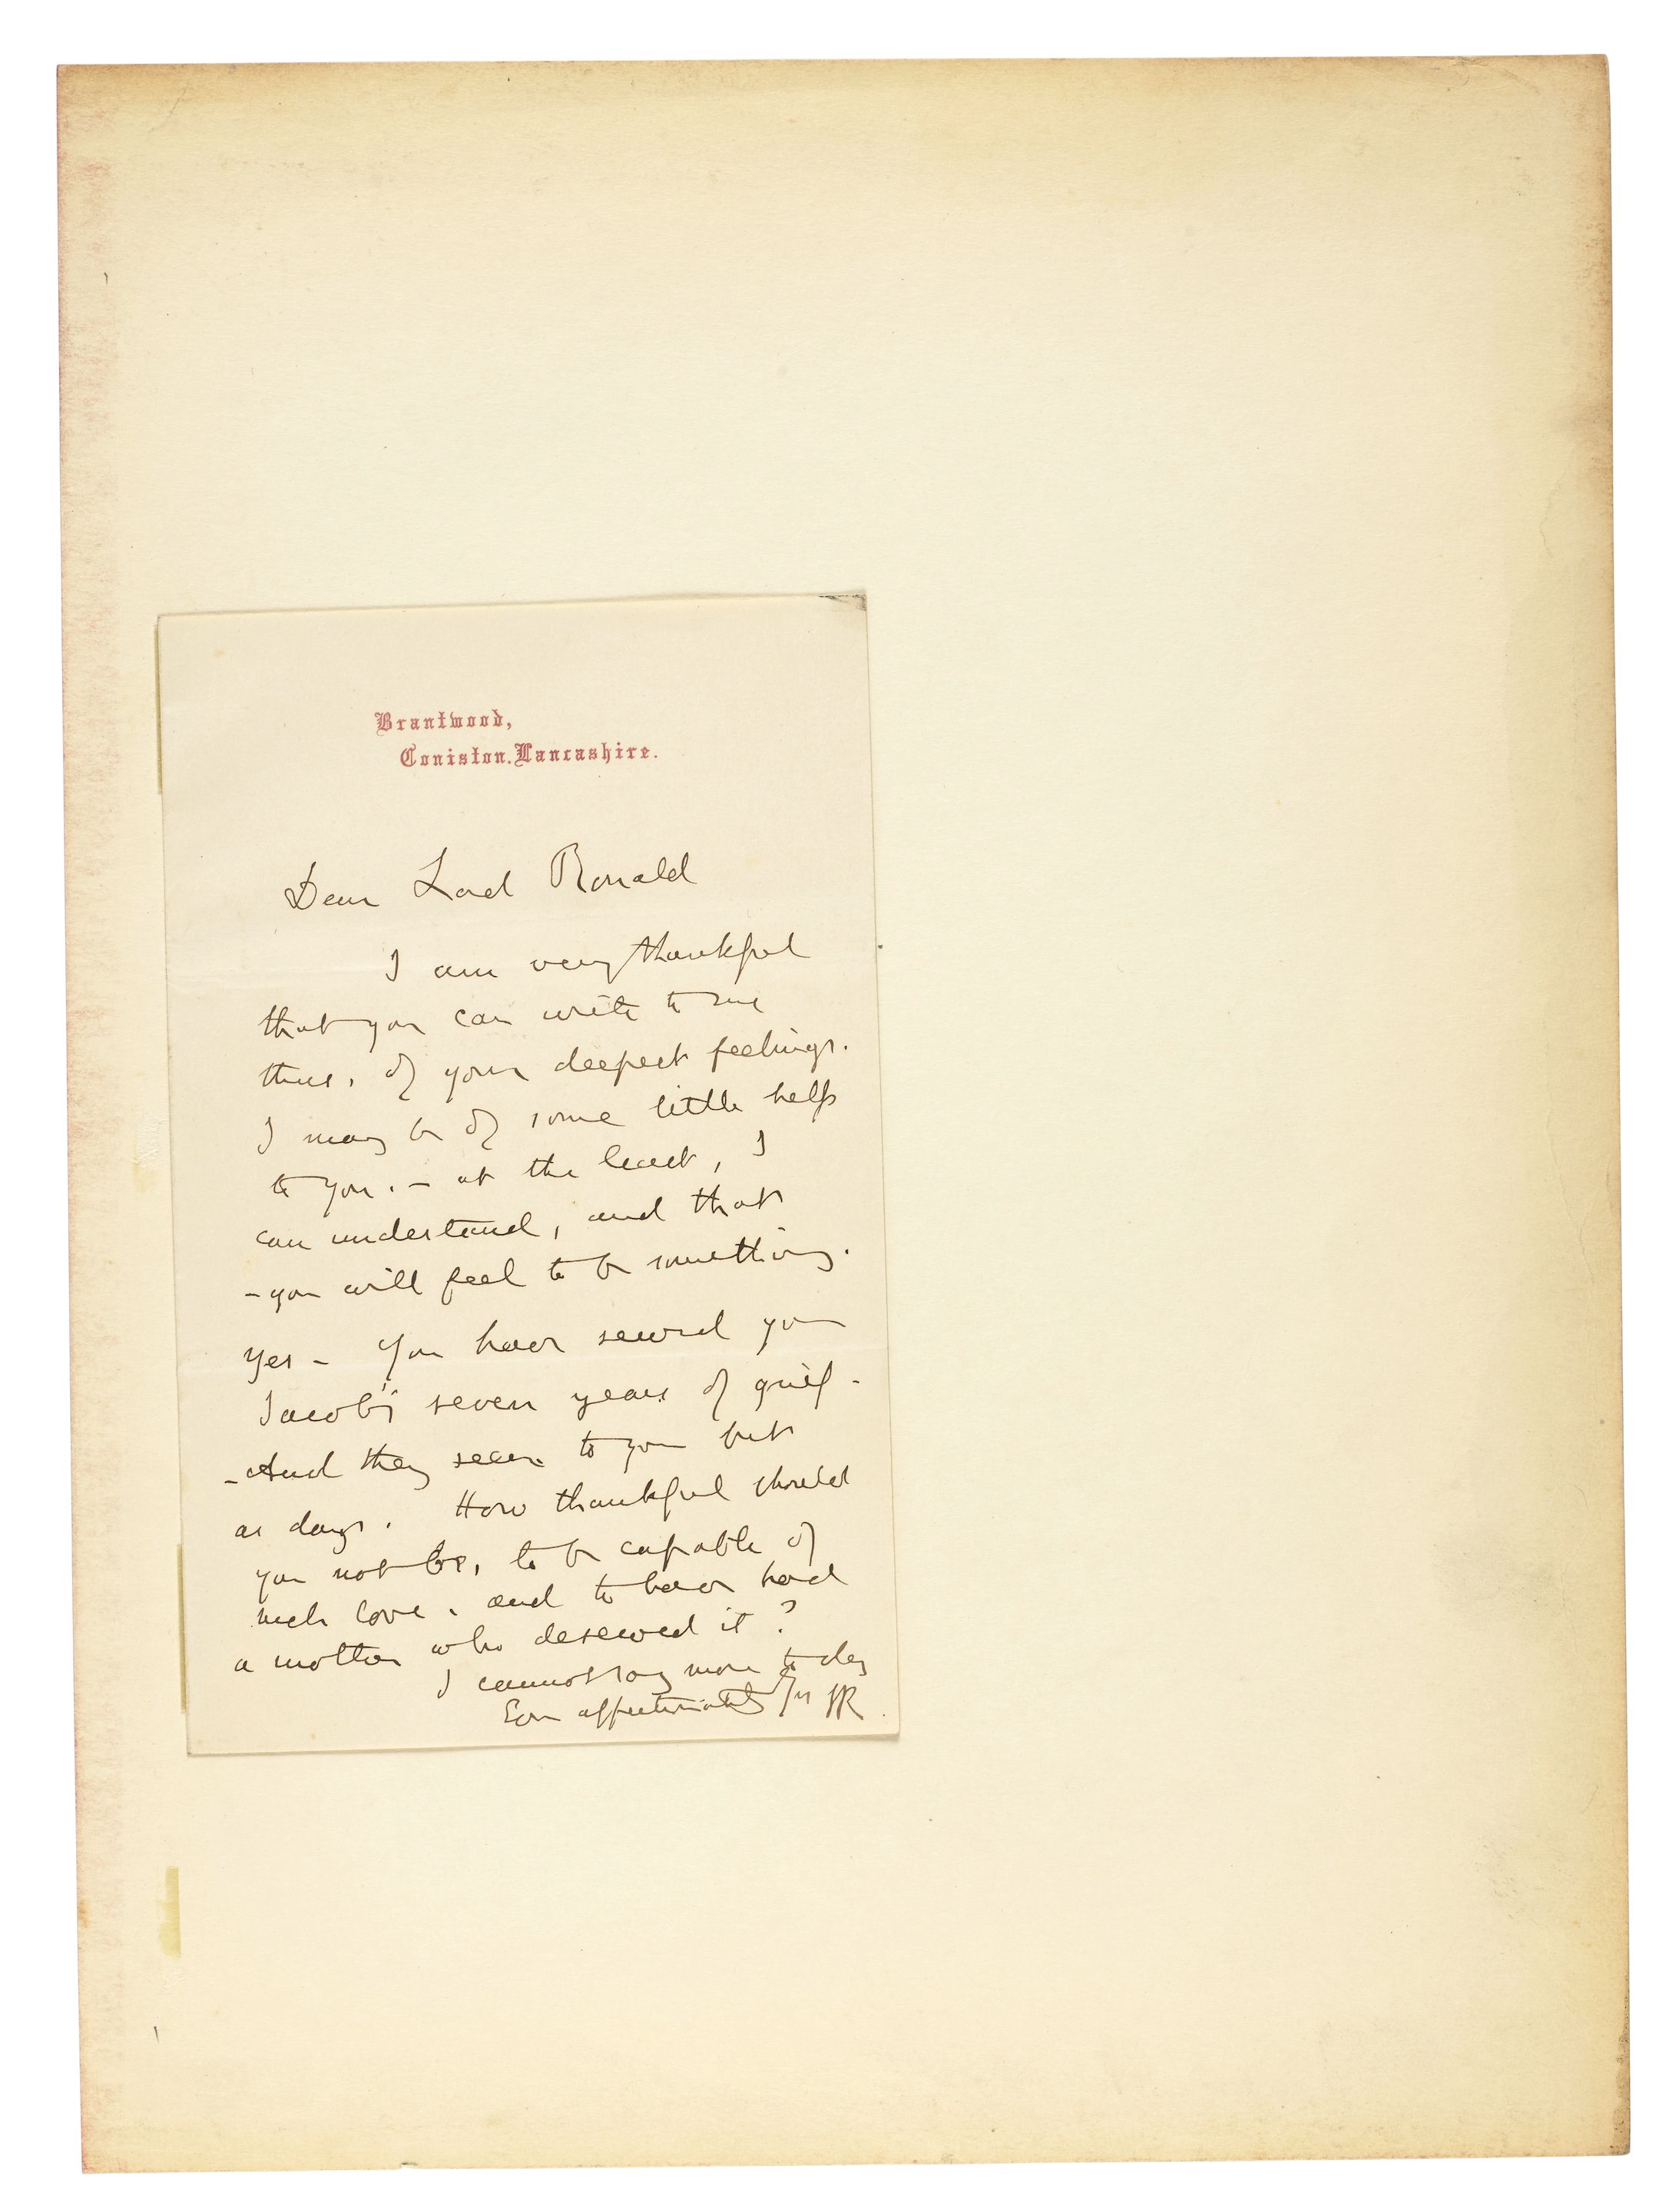 Brantwood,
Coniston. Lancashire.
Dear Lord Ronald
I am very thankful
that you can write to me
thus, of your deepest feelings.
I may be of some little help
to you. – at the least, I
can understand, and that
– you will feel to be something.
Yes – You have served your
Jacob's seven years of grief –
– And they seem to you but
as days. How thankful should
you not be, to be capable of
such love, and to have had
a mother who deserved it?
I cannot say more to day
Ever affectionately Yrs JR.